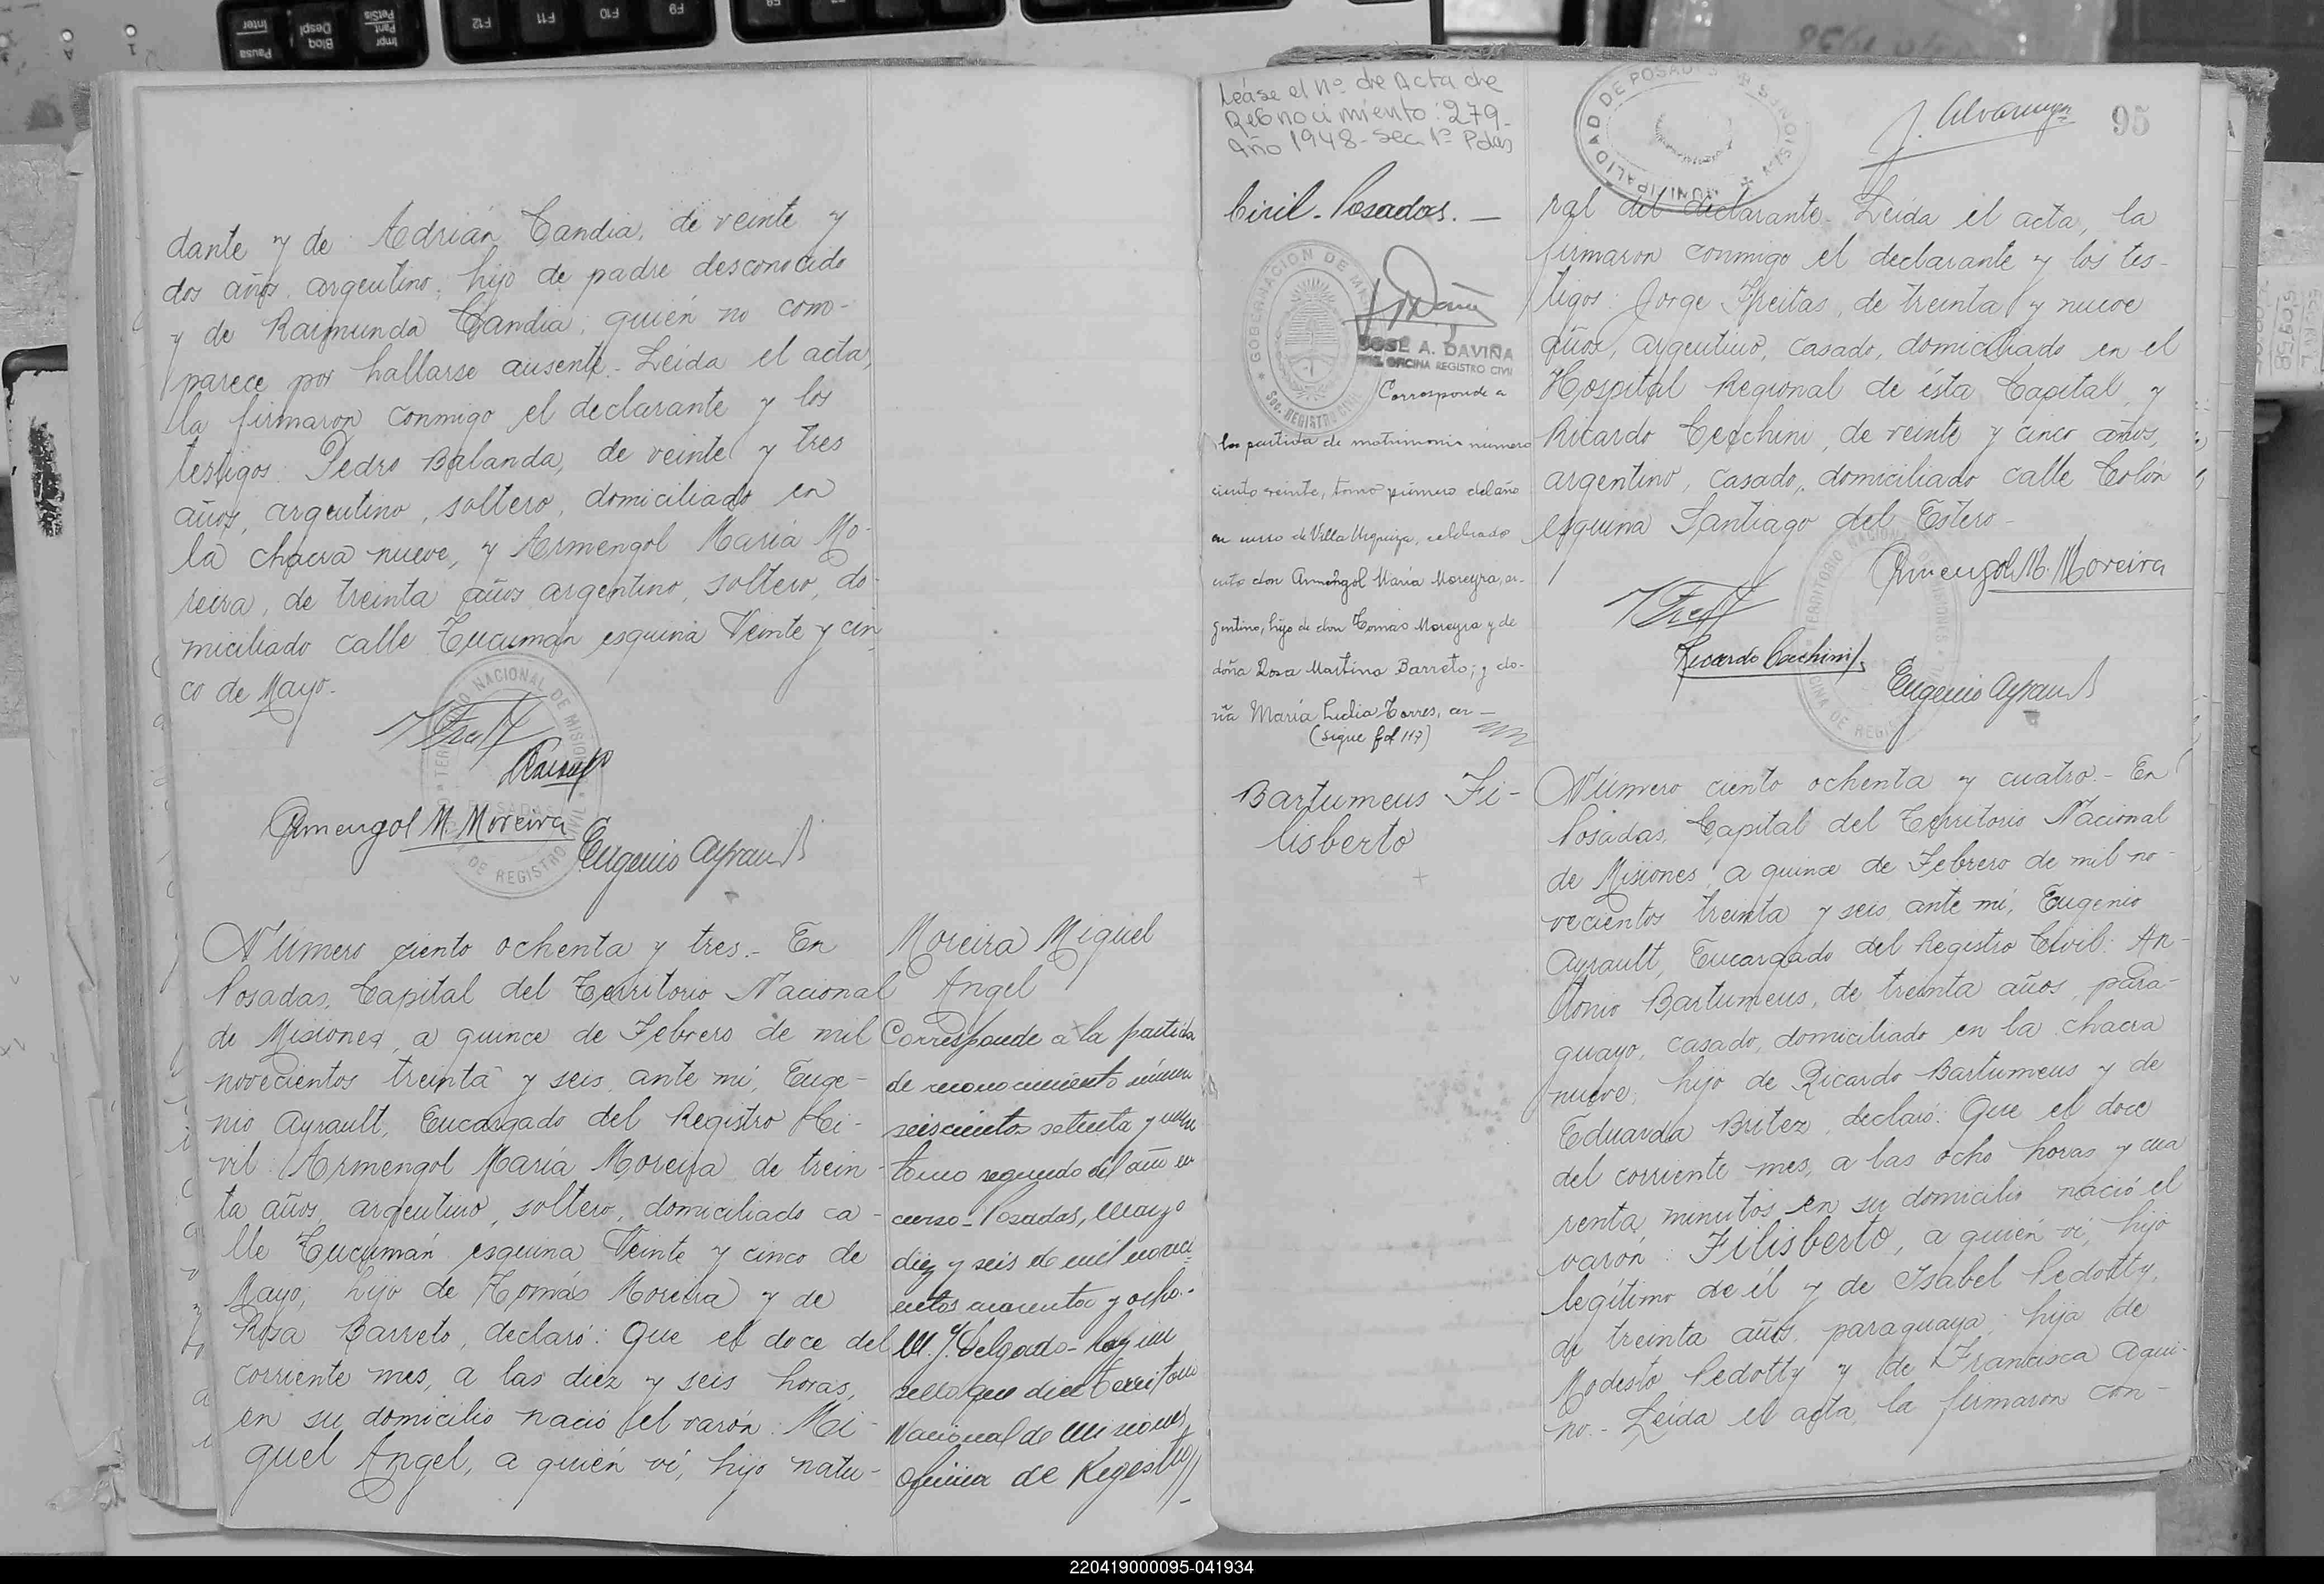 Inter
Pausa
Despl
Bloq
PetSis
Pant
Impr
F12
F11
F10
F9
dante y de Adrián Candia, de veinte y
dos años, argentino, hijo de padre desconocido
y de Raimunda Candia; quién no com-
parece por hallarse ausente. Leída el acta,
la firmaron conmigo el declarante y los
testigos: Pedro Balanda, de veinte y tres
años, argentino, soltero, domiciliado en
la chacra nueve, y Armengol María Mo-
reira, de treinta años, argentino, soltero, do-
miciliado calle Tucumán esquina Veinte y cin
co de Mayo.
Armengol M. Moreira
Eugenio Ayrault
Número ciento ochenta y tres.- En
Posadas, Capital del Territorio Nacional
de Misiones, a quince de Febrero de mil
novecientos treinta y seis, ante mí, Euge-
nio Ayrault, Encargado del Registro Ci-
vil: Armengol María Moreira de trein-
ta años, argentino, soltero, domiciliado ca-
lle Tucumán esquina Veinte y cinco de
Mayo, hijo de Tomás Moreira y de
Rosa Barreto, declaró: Que el doce del
corriente mes, a las diez y seis horas,
en su domicilio nació el varón: Mi-
guel Angel, a quién ví, hijo natu-
Moreira Miguel
Angel
Corresponde a la partida
de reconocimiento número
seiscientos setenta y uno
tomo segundo del año en
curso - Posadas, Mayo
diez y seis de mil noveci-
entos cuarenta y ocho.-
M. J. Delgado - hay un
sello que dice Territorio
Nacional de Misiones
Oficina de Registro
Léase el Nº de Acta de
Reconocimiento: 279-
Año 1948 - Sec. 1ª Pdas
Civil - Posadas. -
GOBERNACION DE MISIONES
SEC. REGISTRO CIVIL
JOSÉ A. DAVIÑA
OFICINA REGISTRO CIVIL
Corresponde a
la partida de matrimonio número
ciento veinte, tomo primero del año
en curso de Villa Urquiza, celebrado
entre don Armengol María Moreyra, ar-
gentino, hijo de don Tomás Moreyra y de
doña Rosa Martina Barreto; y do-
ña María Lidia Torres, ar-
(sigue fol 117)
Bartumeus Fi-
lisberto
MUNICIPALIDAD DE POSADAS MISIONES
J. Alvarenga
95
ral del declarante. Leída el acta, la
firmaron conmigo el declarante y los tes-
tigos: Jorge Freitas, de treinta y nueve
años, argentino, casado, domiciliado en el
Hospital Regional de ésta Capital, y
Ricardo Cecchini, de veinte y cinco años,
argentino, casado, domiciliado calle Colón
esquina Santiago del Estero.
Armengol M. Moreira
Ricardo Cecchini
Eugenio Ayrault
Número ciento ochenta y cuatro.- En
Posadas, Capital del Territorio Nacional
de Misiones, a quince de Febrero de mil no-
vecientos treinta y seis, ante mí, Eugenio
Ayrault, Encargado del Registro Civil: An-
tonio Bartumeus, de treinta años, para-
guayo, casado, domiciliado en la chacra
nueve, hijo de Ricardo Bartumeus y de
Eduarda Britez, declaró: Que el doce
del corriente mes, a las ocho horas y cua
renta minutos en su domicilio nació el
varón: Filisberto, a quién ví, hijo
legítimo de él y de Isabel Pedotty,
de treinta años, paraguaya; hija de
Modesto Pedotty y de Francisca Aqui-
no.- Leída el acta, la firmaron con-
220419000095-041934